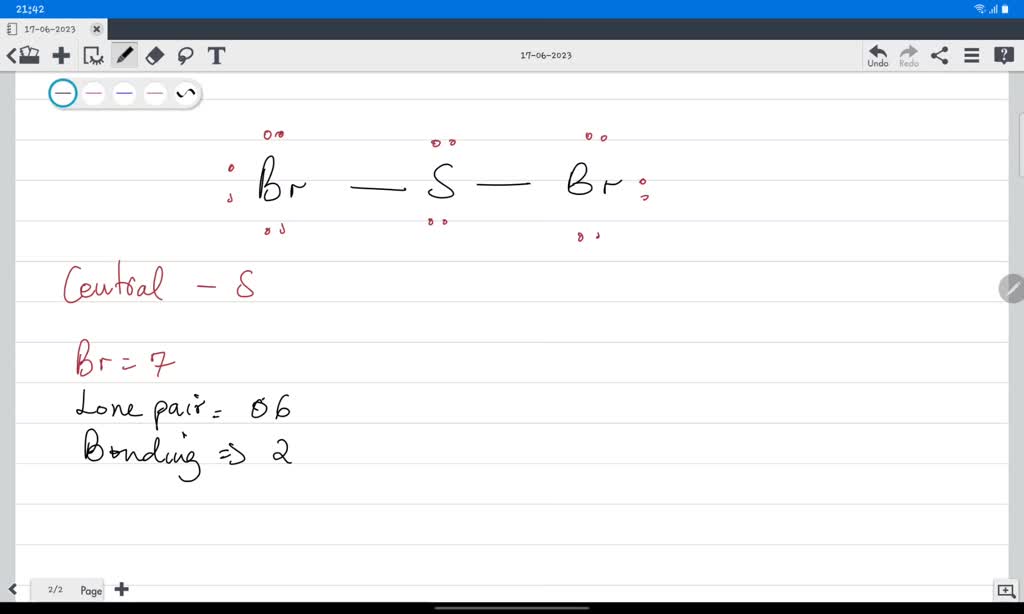 21:42
17-06-2023
T
17-06-2023
Undo
Redo
?
Br — S — Br
Central - S
Br = 7
Lone pair = 06
Bonding => 2
2/2
Page